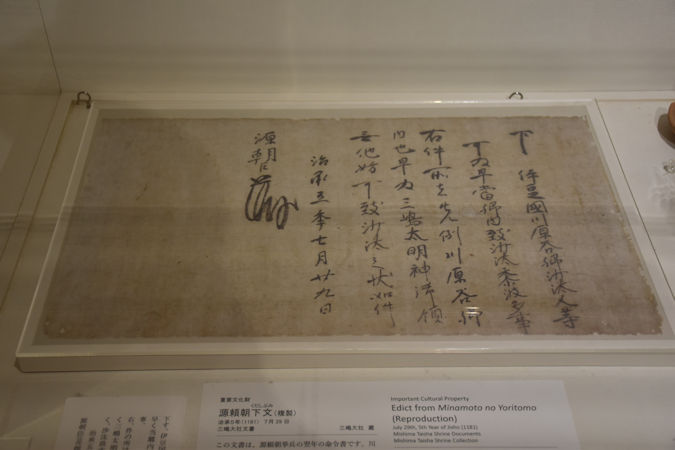 下 伊豆國川原谷郷沙汰人等
可為早當郷内致沙汰
右件所者先例川原谷郷
内也早為三嶋大明神御領
無他妨可致沙汰之状如件
治承五年七月廿九日
源朝臣
重要文化財
くだしぶみ
源頼朝下文(複製)
治承5年(1181) 7月29日
三嶋大社文書 三嶋大社 蔵
この文書は、源頼朝挙兵の翌年の命令書です。川
Important Cultural Property
Edict from Minamoto no Yoritomo
(Reproduction)
July 29th, 5th Year of Jisho (1181)
Mishima Taisha Shrine Documents
Mishima Taisha Shrine Collection
下す、伊豆国
早く当郷内